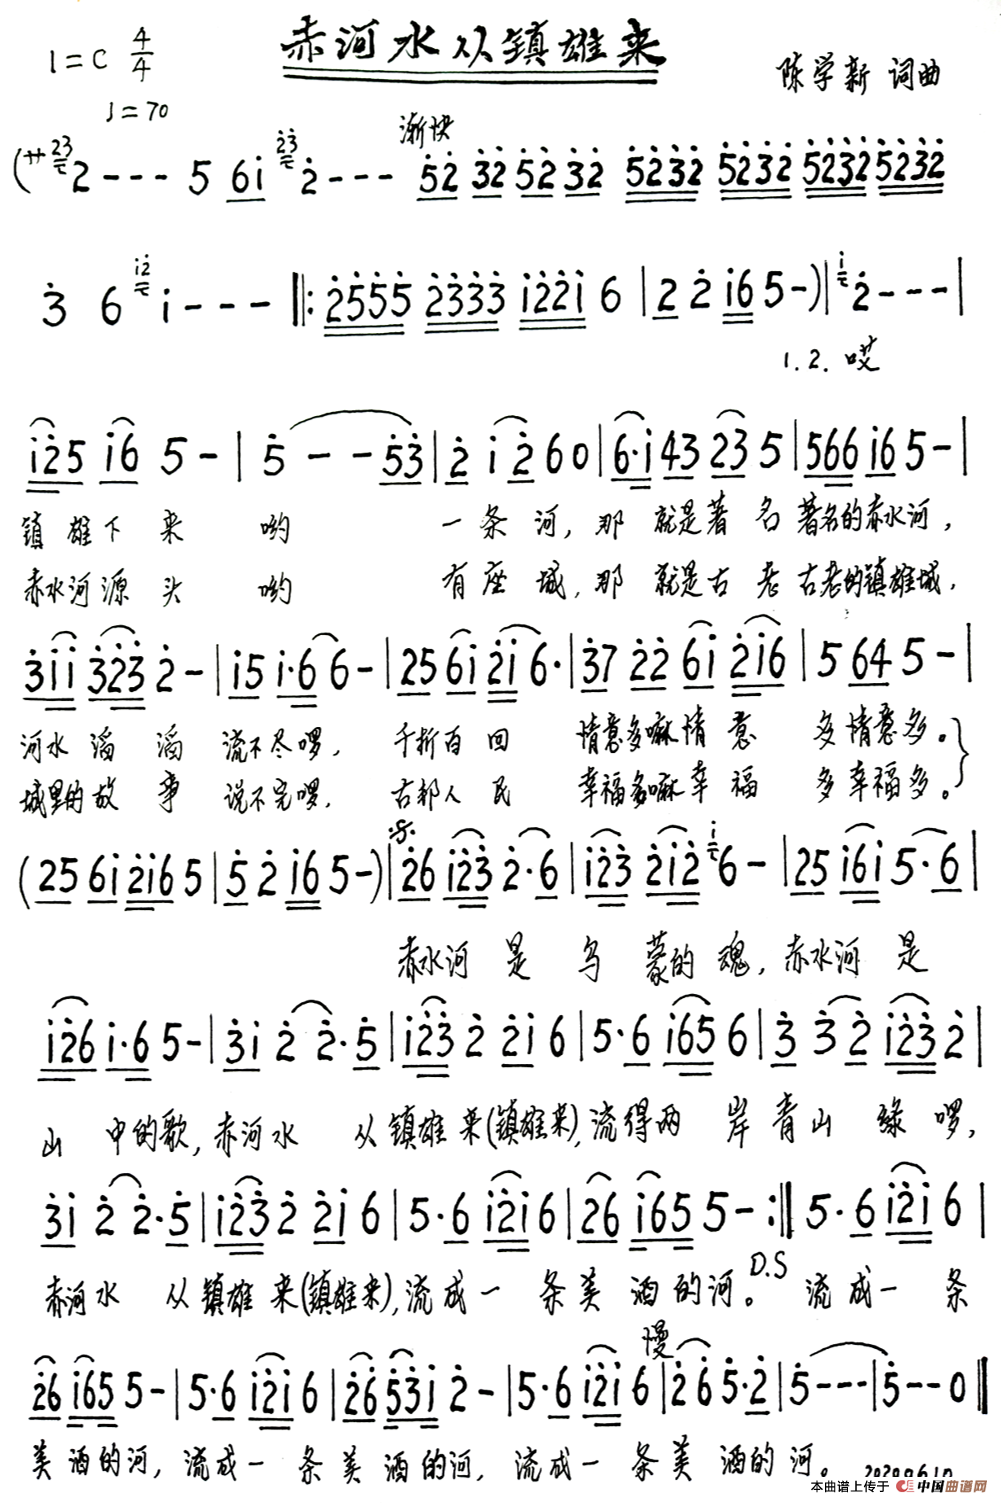 赤河水从镇雄来
1=C 4/4
♩=70
陈学新 词曲
渐快
(サ 2 - - - 5 6i 2 - - - 52 32 52 32 5232 5232 5232 5232
3 6 i - - - ‖: 2555 2333 i22i 6 | 2 2 i6 5 - )‖ 2 - - - |
1.2. 哎
i25 i6 5 - | 5 - - 53 | 2 i 2 6 0 | 6·i 43 23 5 | 566 i6 5 - |
镇雄下来 哟 一条河,那 就是著名 著名的赤水河,
赤水河源头 哟 有座城,那 就是古老 古老的镇雄城,
3ii 323 2 - | i5 i·6 6 - | 25 6i 2i 6· | 37 22 6i 2i6 | 5 64 5 - |
河水滔滔 流不尽啰, 千折百回 情意多嘛情意 多情意多。
城里的故事 说不完啰, 古邦人民 幸福多嘛幸福 多幸福多。
(25 6i 2i6 5 | 5 2 i6 5 - )| 26 i23 2·6 | i23 2i2 6 - | 25 i6i 5·6 |
赤水河是乌蒙的魂,赤水河是
i26 i·6 5 - | 3i 2 2·5 | i23 2 2i 6 | 5·6 i65 6 | 3 3 2 i23 2 |
山 中的歌,赤河水 从镇雄来(镇雄来),流得两岸青山绿啰,
3i 2 2·5 | i23 2 2i 6 | 5·6 i2i 6 | 26 i65 5 - :‖ 5·6 i2i 6 |
赤河水 从镇雄来(镇雄来),流成一条美酒的河。 D.S 流成一条
慢
26 i65 5 - | 5·6 i2i 6 | 26 53i 2 - | 5·6 i2i 6 | 26 5·2 | 5 - - - | 5 - - 0 ‖
美酒的河,流成一条美酒的河,流成一条美酒的河。
2020.6.10
本曲谱上传于 中国曲谱网